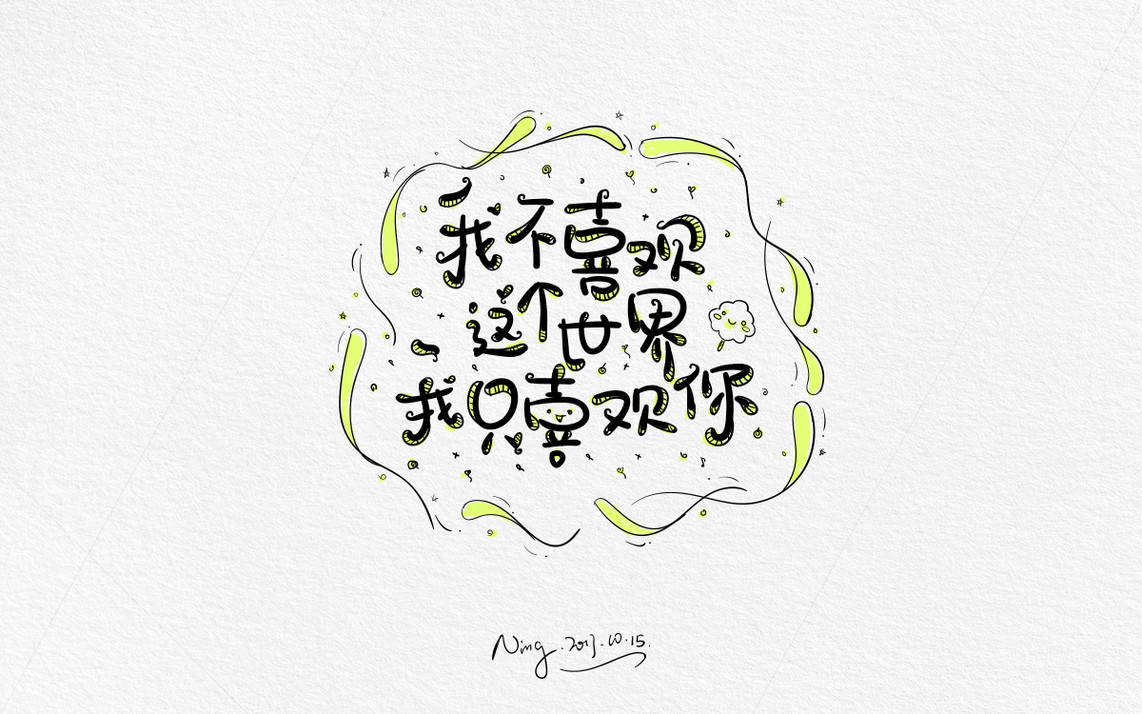 我不喜欢
这个世界
我只喜欢你
Ning.2013.10.15.